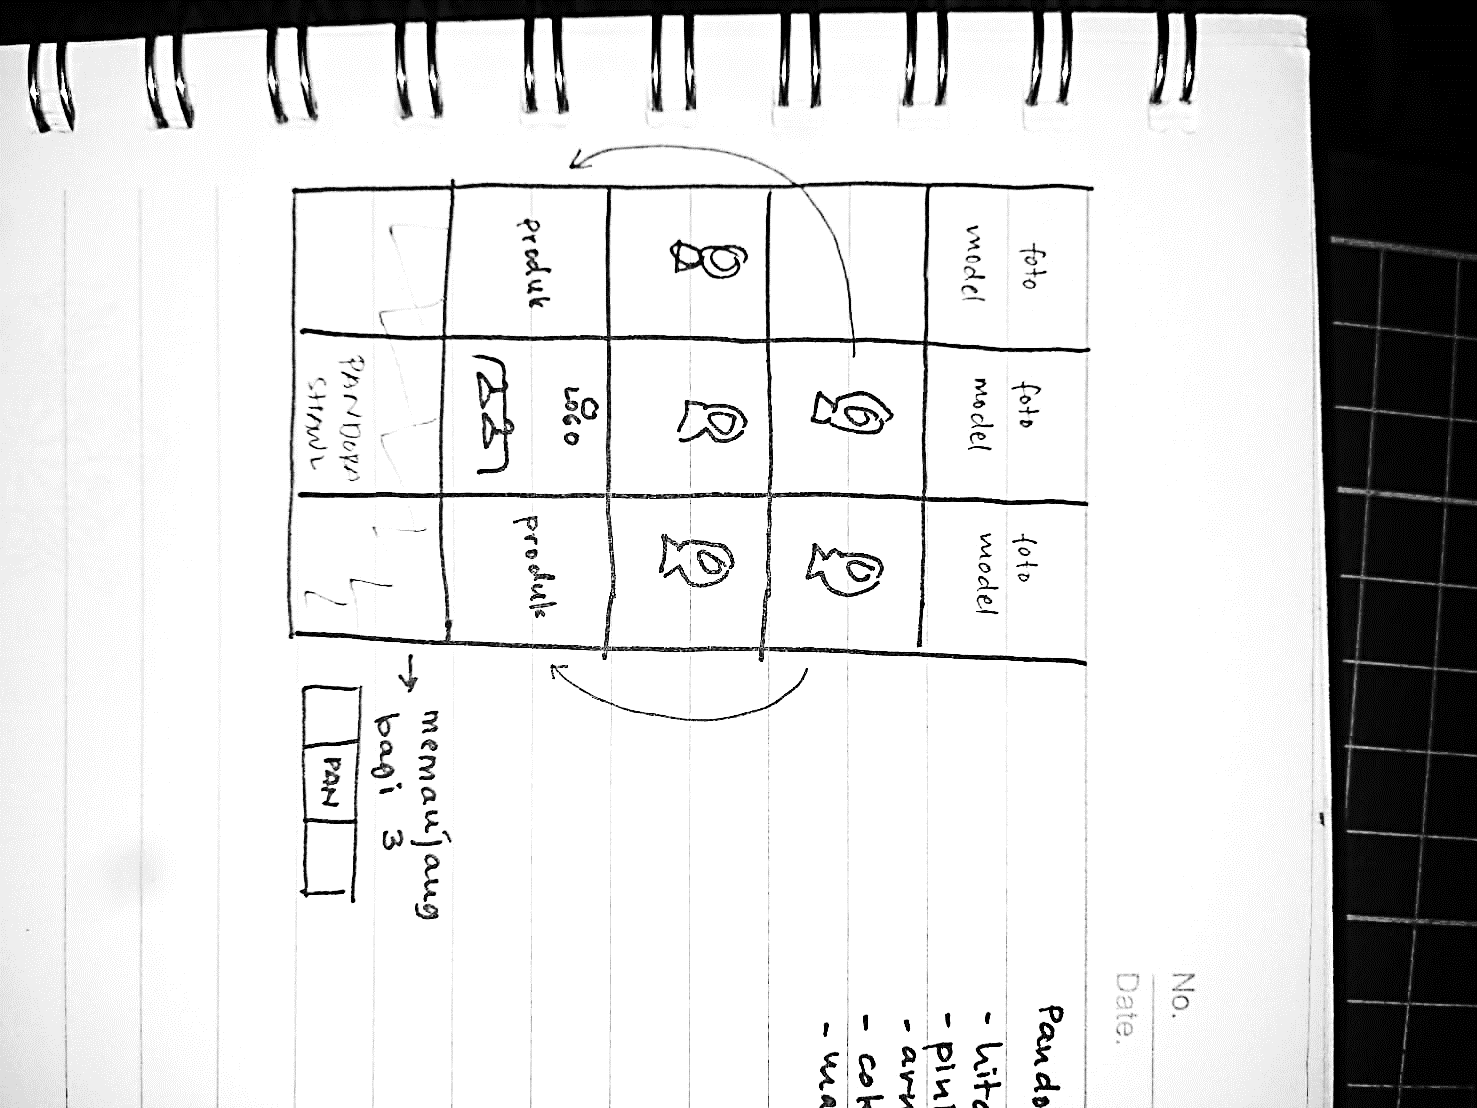 No.
Date.
foto
model
foto
model
foto
model
produk
LOGO
produk
PANDORA
memanjang
bagi 3
PAN
Pando
- hita
- pin
- arm
- cok
- ma